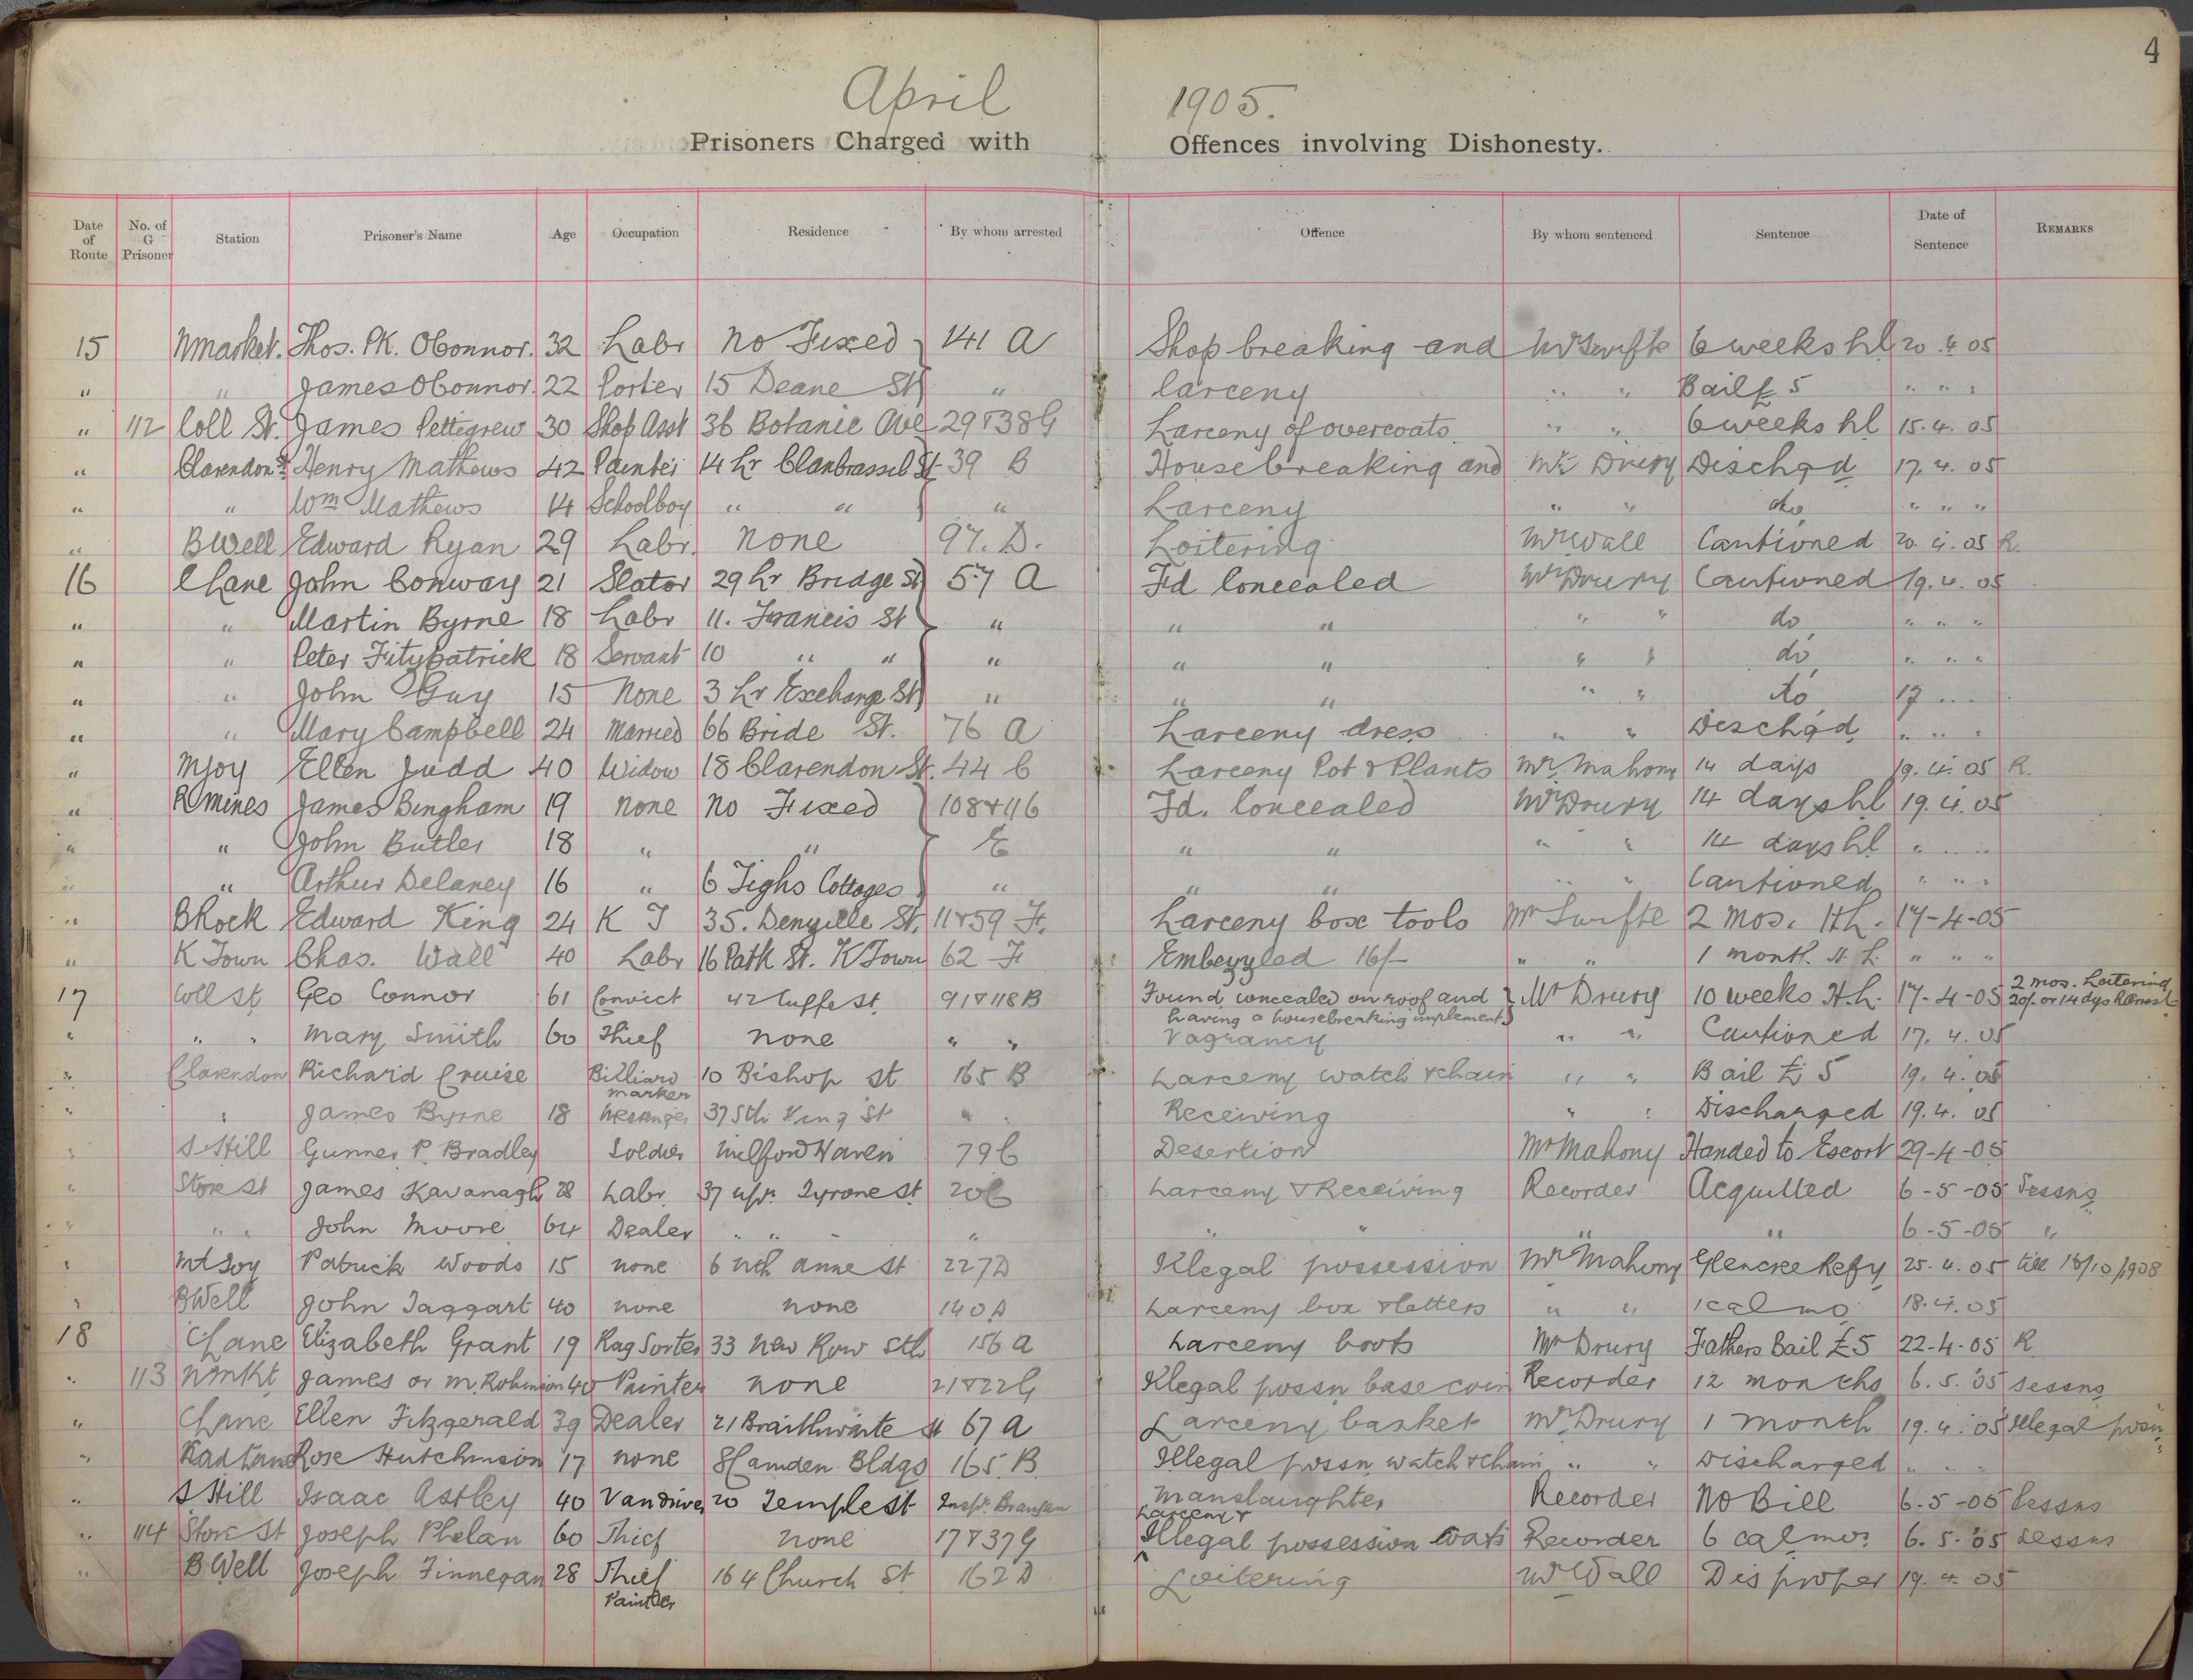 4
April 1905.
Prisoners Charged with Offences involving Dishonesty.
Date of Route No. of G Prisoner Station Prisoner's Name Age Occupation Residence By whom arrested Offence By whom sentenced Sentence Date of Sentence Remarks
15 Nmarket. Thos. PK. OConnor. 32 Labr No Fixed 141 A Shop breaking and Mr Swifte 6 weeks hl 20.4.05
" " James OConnor. 22 Porter 15 Deane St " larceny " " Bail £5 " " "
" 112 Coll St. James Pettigrew 30 Shop Asst 36 Botanic Ave 29 & 38G Larceny of overcoats. " " 6 weeks hl 15.4.05
" Clarendon St Henry Mathews 42 Painter 14 Lr Clanbrassil St 39 B Housebreaking and Mr Drury Dischgd 17.4.05
" " Wm Mathews 14 Schoolboy " " " Larceny " " do " " "
" BWell Edward Ryan 29 Labr. None 97. D. Loitering Mr Wall Cautioned 20.4.05 R.
16 C Lane John Conway 21 Slator 29 Lr Bridge St 57 A Fd Concealed Mr Drury Cautioned 19.4.05
" " Martin Byrne 18 Labr 11. Francis St " " " " " do " " "
" " Peter Fitzpatrick 18 Servant 10 " " " " " " " do " " "
" " John Guy 15 None 3 Lr Exchange St " " " " " do 17 " "
" " Mary Campbell 24 Married 66 Bride St. 76 A Larceny dress " " Dischgd. " " "
" Mjoy Ellen Judd 40 Widow 18 Clarendon St. 44 C Larceny Pot & Plants Mr. Mahony 14 days 19.4.05 R.
" R mines James Bingham 19 None No Fixed 108 & 116 Fd. Concealed Mr Drury 14 days hl 19.4.05
" " John Butler 18 " " E " " " " 14 days hl " " "
" " Arthur Delaney 16 " 6 Tighs Cottages " " " " " Cautioned " " "
" B Rock Edward King 24 K J 35. Denzille St. 11 & 59 F. Larceny box tools Mr Swifte 2 mos. H h. 17-4-05
" K Town Chas. Wall 40 Labr 16 Patk St. K Town 62 F Embezzled 16/- " " 1 month. H. L. " " "
17 Coll St Geo Connor 61 Convict 42 Cuffe St. 91 & 118 B Found concealed on roof and Mr Drury 10 weeks H.h. 17-4-05 2 mos. Loitering
having a housebreaking implement 20/- or 14 dys
" " " Mary Smith 60 Thief none " " Vagrancy " " Cautioned 17.4.05
" Clarendon Richard Cruise Billiard marker 10 Bishop St 165 B Larceny watch & chain " " Bail £5 19.4.05
" " James Byrne 18 Messenger 37 Sth King St " " Receiving " " Discharged 19.4.05
" S Hill Gunner P. Bradley Soldier Milford Haven 79 C Desertion Mr Mahony Handed to Escort 29-4-05
" Store St James Kavanagh 28 Labr. 37 upr. Tyrone St 20C Larceny & Receiving Recorder Acquitted 6-5-05 Sessns
" " " John Moore 64 Dealer " " " " " " " " 6-5-05 "
" Mtjoy Patrick Woods 15 none 6 Nth Anne St 227D Illegal possession Mr Mahony Glencree Refy 25.4.05 till 18/10/1908
" BWell John Taggart 40 none none 140D Larceny box & letters " " 1 cal mo 18.4.05
18 C Lane Elizabeth Grant 19 Rag Sorter 33 New Row Sth 156 A Larceny boots Mr Drury Fathers Bail £5 22-4-05 R
" 113 Nmkt James or M. Robinson 40 Painter none 21 & 22 G Illegal possn base coin Recorder 12 months 6.5.'05 Sessns
" C Lane Ellen Fitzgerald 39 Dealer 21 Braithwaite St 67 A Larceny basket Mr Drury 1 month 19.4.'05 Illegal possn
" Lane Rose Hutchinson 17 none Hamden Bldgs 165. B Illegal possn watch & chain " " Discharged " " "
" S Hill Isaac Astley 40 Vandriver 20 Temple St Inspr. Manslaughter Recorder No Bill 6-5-05 Sessns
" 114 Store St Joseph Phelan 60 Thief none 17 & 37G Larceny & Illegal possession coats Recorder 6 cal mos 6.5.'05 Sessns
" B Well Joseph Finnegan 28 Thief Painter 164 Church St 162 D Loitering Mr Wall Dis proper 19.4.05